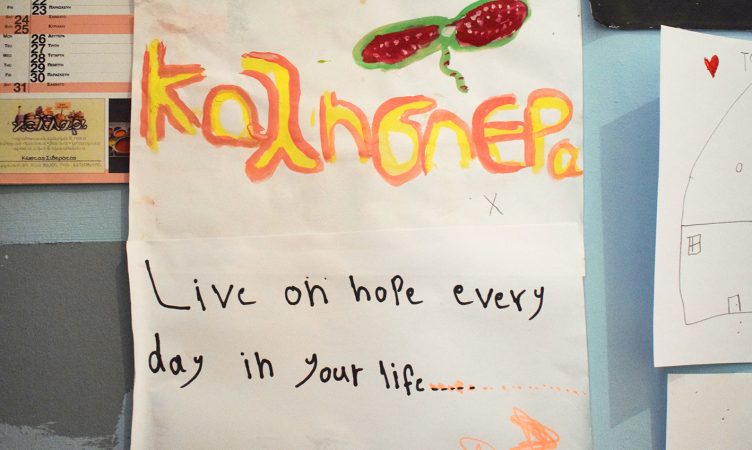 22
Fri 23 ΠΑΡΑΣΚΕΥΗ
24 ΣΑΒΒΑΤΟ
25 ΚΥΡΙΑΚΗ
Mon 26 ΔΕΥΤΕΡΑ
Tue 27 ΤΡΙΤΗ
Wed 28 ΤΕΤΑΡΤΗ
Thu 29 ΠΕΜΠΤΗ
Fri 30 ΠΑΡΑΣΚΕΥΗ
31 ΣΑΒΒΑΤΟ
κελλάρι
ΚαλησπΕΡα
x
Live on hope every
day in your life......